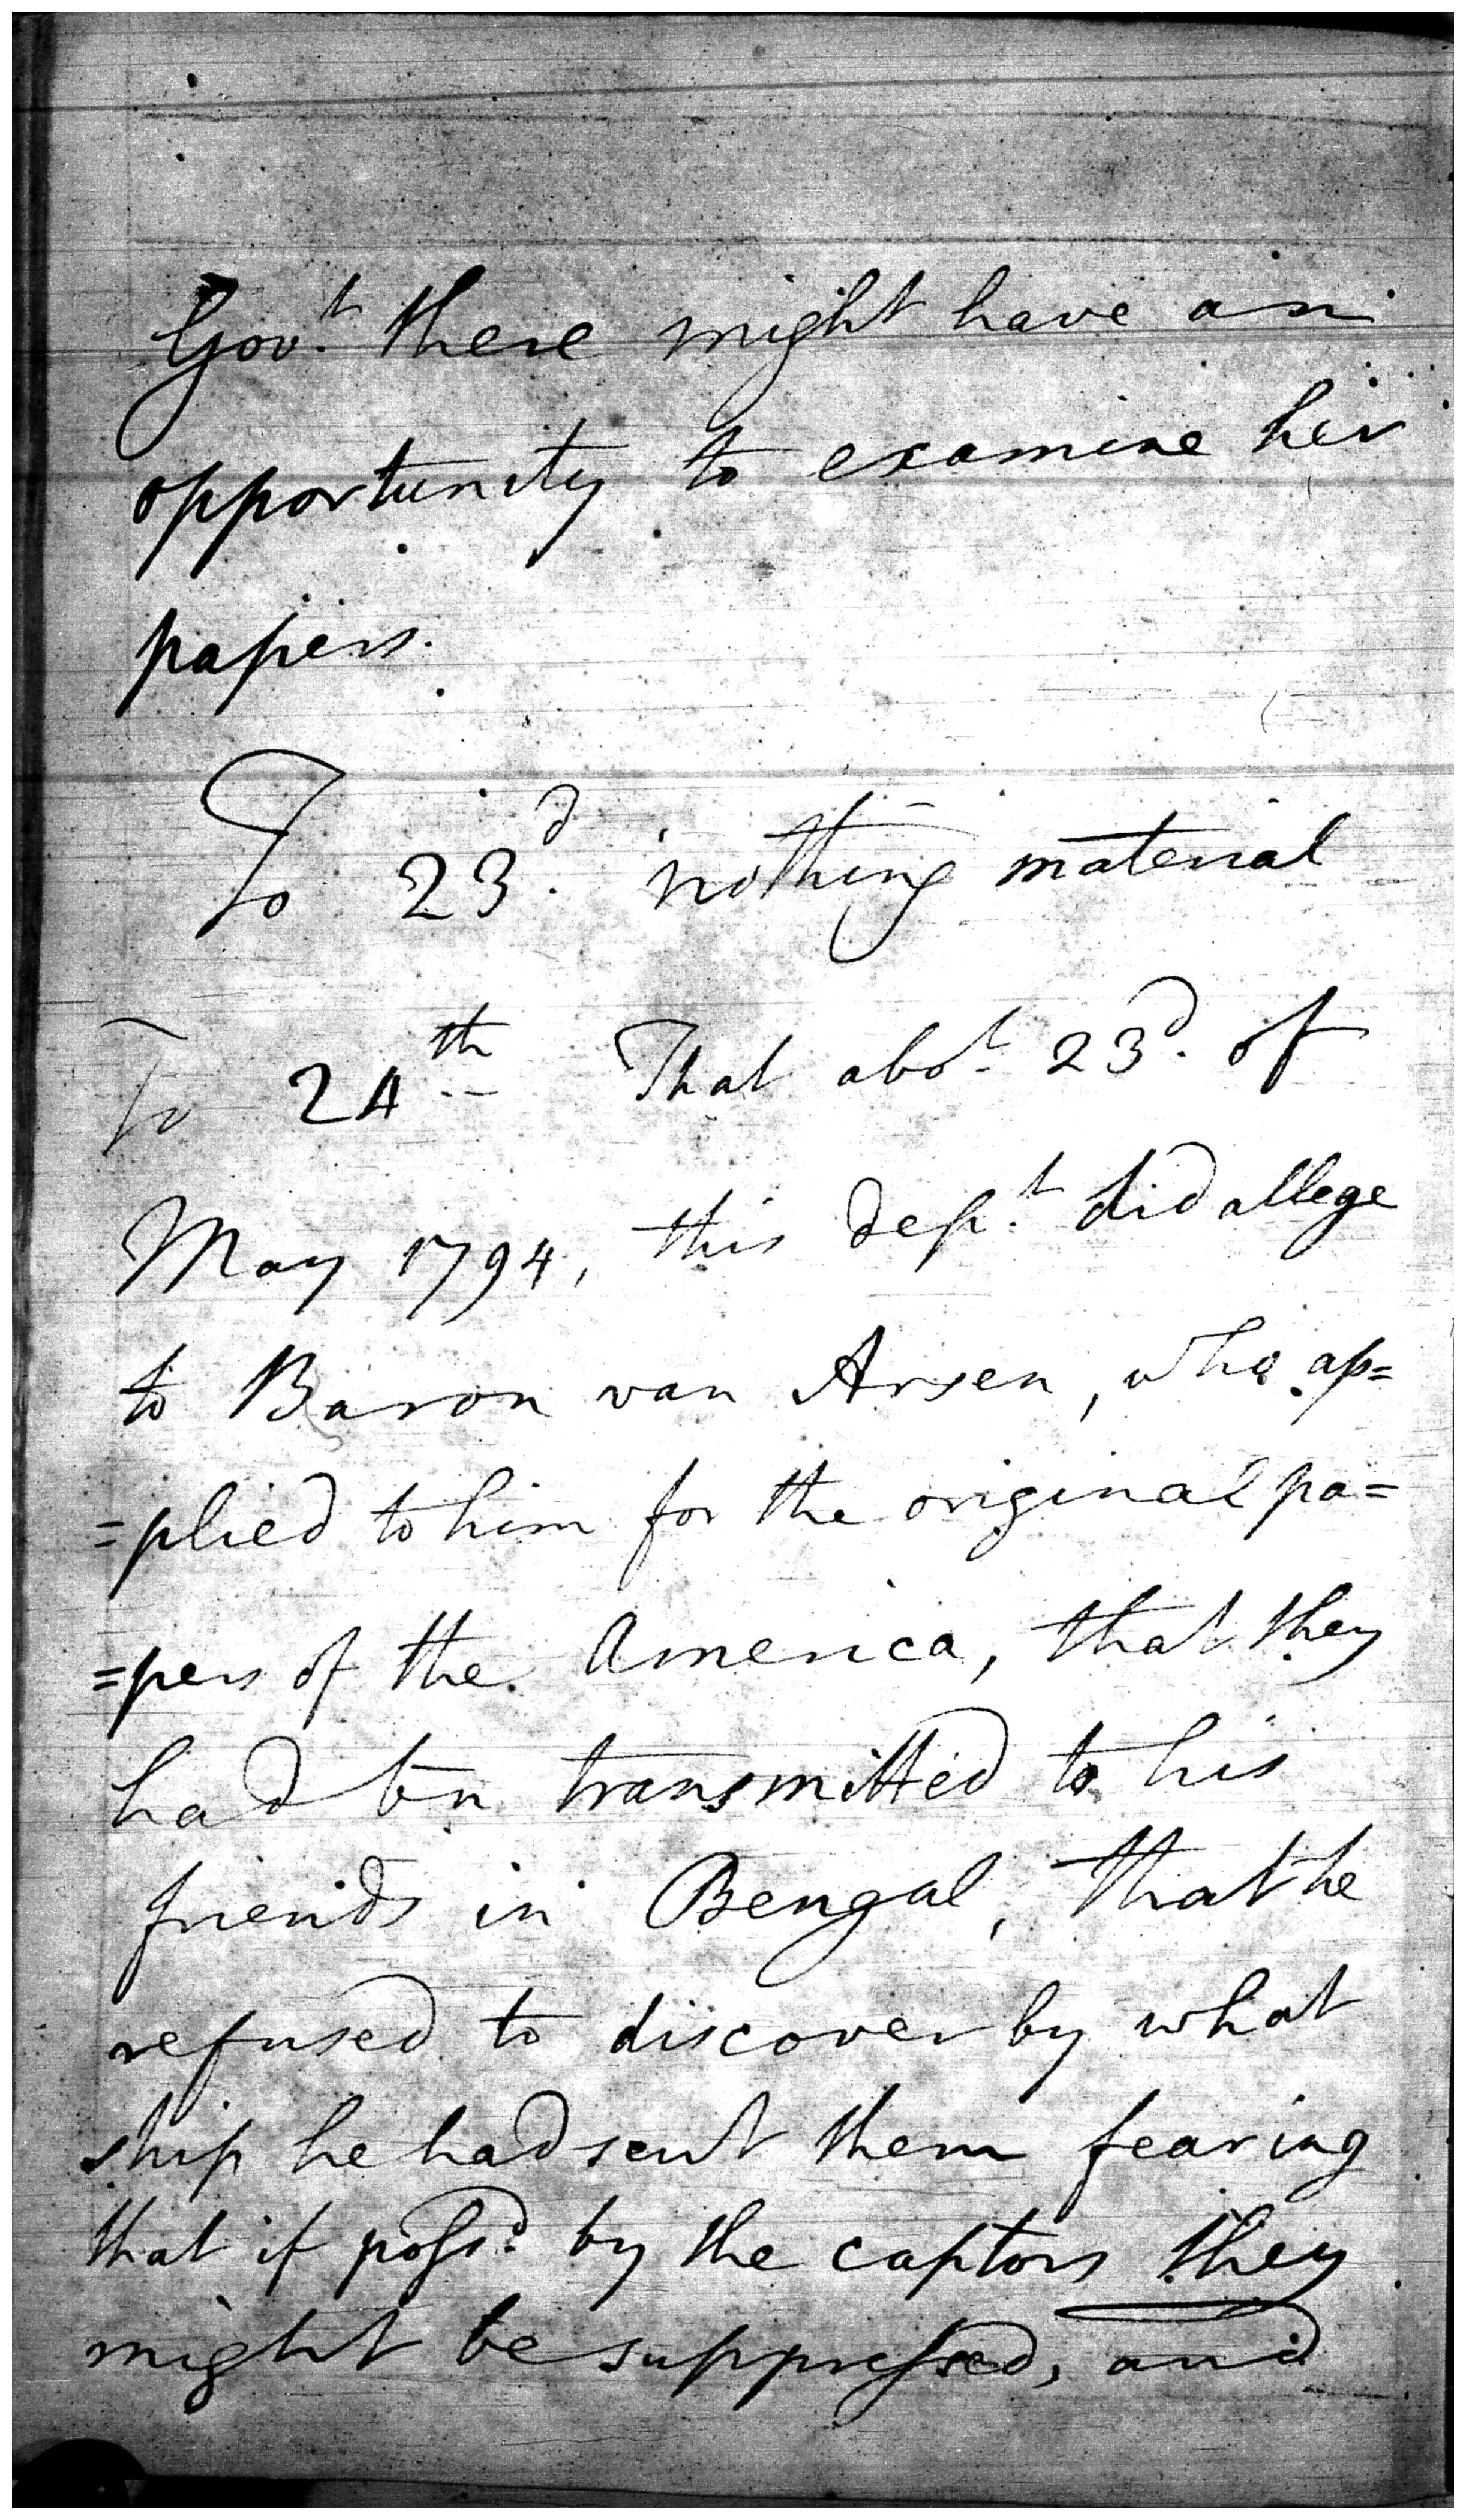 Gov.t there might have an
opportunity to examine her
papers.
To 23.d nothing material
To 24th That abo.t 23.d of
May 1794, this dep.t did allege
to Baron van Arsen, who ap=
=plied to him for the original pa=
=pers of the America, that they
had bn transmitted to his
friends in Bengal, that he
refused to discover by what
ship he had sent them fearing
that if poss.d by the captors they
might be suppressed, and